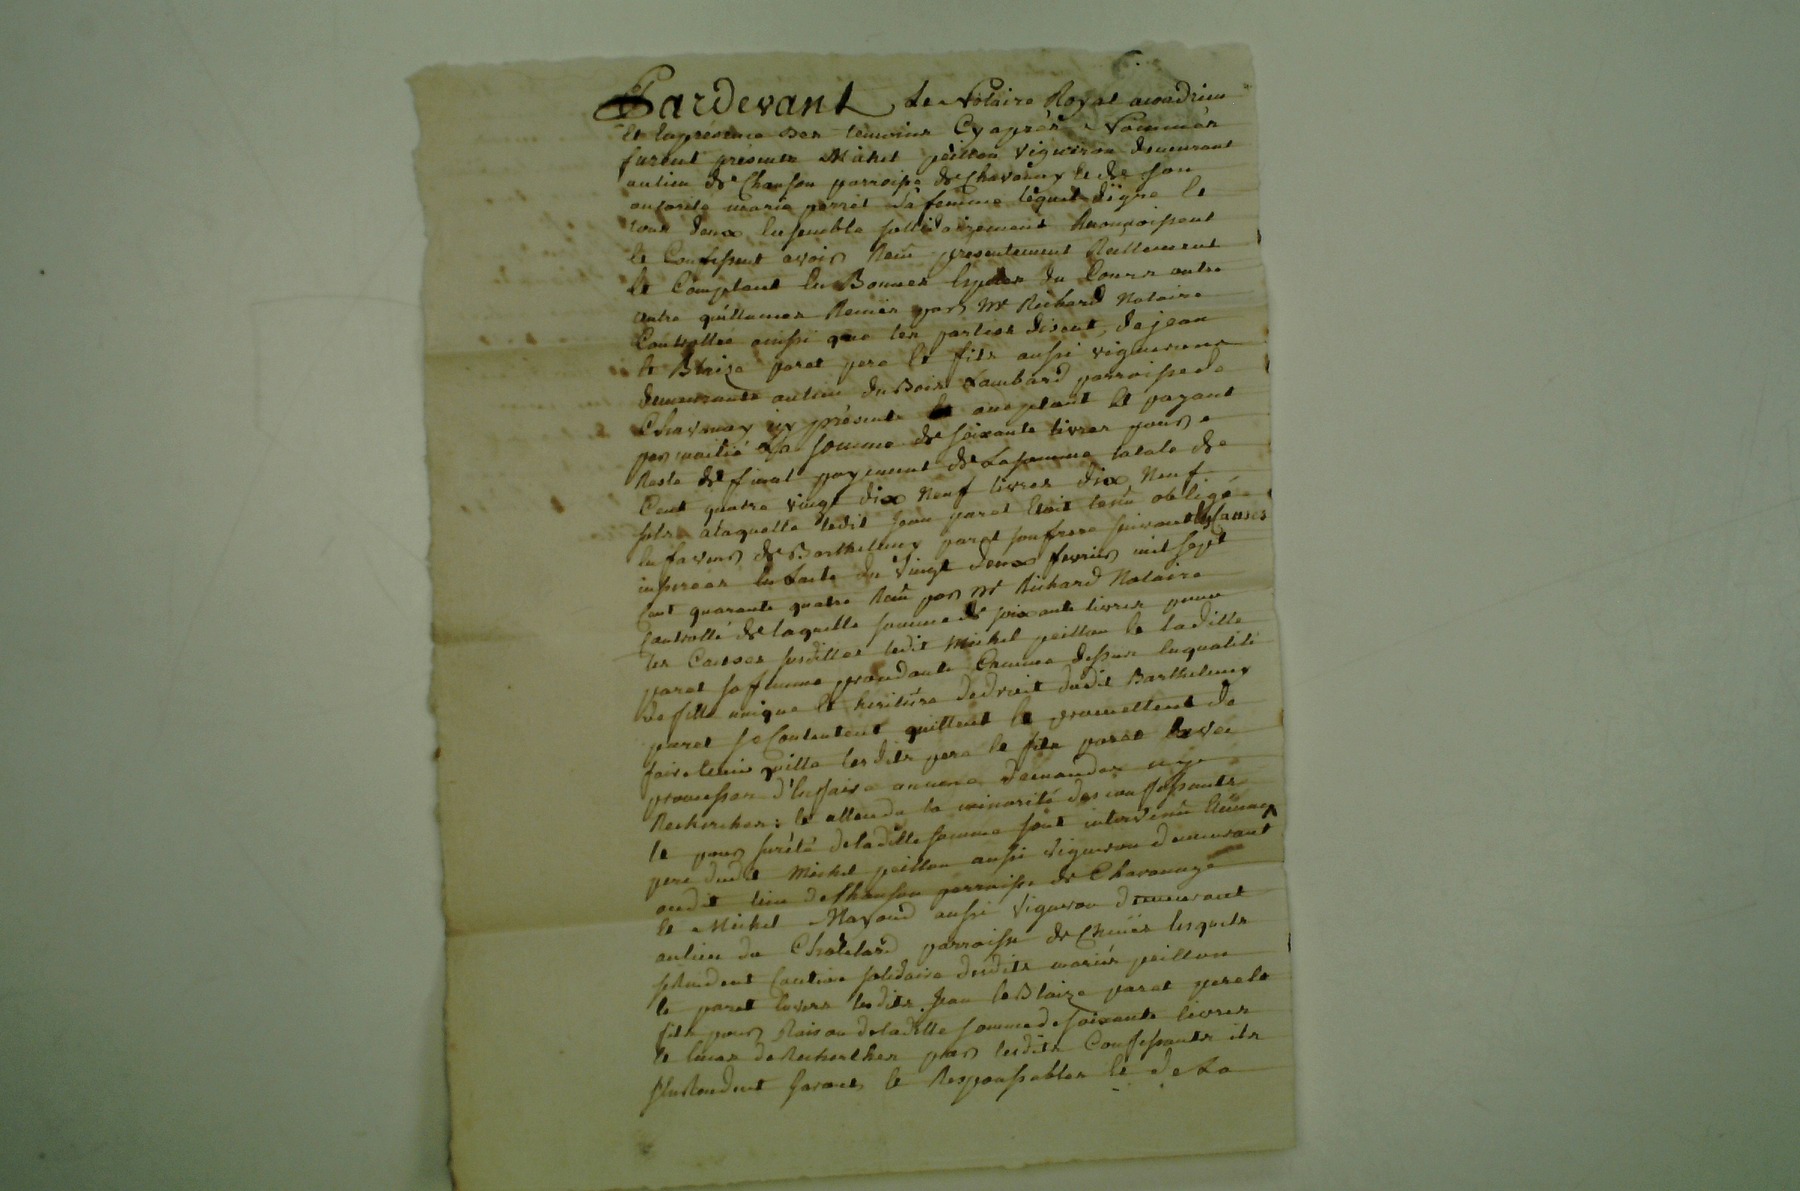 Pardevant Le Notaire Royal
Et la présence des temoins Cyaprès Nommés
furent présents Michel peillon vigneron demeurant
au lieu de Chanson parroisse de Chavanay et de son
autorité marie parret sa femme
tous deux Ensemble sollidairement
et Confessent avoir Reçu presentement Reellement
et Comptant En Bonnes Espèces du Cours outre
autre quittances Reçües par Me Richard Notaire
Controllée ainsi que les parties disent, de jean
et Blaize paret pere et fils aussi vignerons
demeurants au lieu du Bois Lombard parroisse de
Chavanay icy présents acceptant et payant
par moitié La somme de soixante livres pour
Reste de final payement de La somme totale de
Cent quatre vingt dix Neuf livres dix Neuf
sols a laquelle ledit Jean paret Etoit tenu obligé
En faveur de Barthelemy paret son frere suivant les Causes
inserées En Lacte du Vingt deux fevrier mil sept
Cent quarante quatre Reçu par Me Richard Notaire
Controllé de laquelle somme de soixante livres pour
les Causes susdittes ledit Michel peillon et laditte
paret sa femme procedante Comme dessus En qualité
de fille unique et heritiere de droit dudit Barthelemy
paret se Contentent quittent et promettent de
faire tenir quitte lesdits pere et fils paret avec
promesse d'En faire aucune demandes ny
Recherches; et attendu la minorité des confessants
et pour sureté de laditte somme sont intervenu
pere dudit Michel peillon aussi vigneron demeurant
audit lieu de Chanson parroisse de Chavanay
et Michel Mayoud aussi vigneron demeurant
au lieu du Chatelard parroisse de lesquels
se Rendent Caution solidaire desdits mariés peillon
et paret Envers lesdits Jean et Blaize paret pere et
fils pour Raison de laditte somme de soixante livres
de Recherches par lesdits Confessants ils
s'En Rendent Garants et Responsables et de La